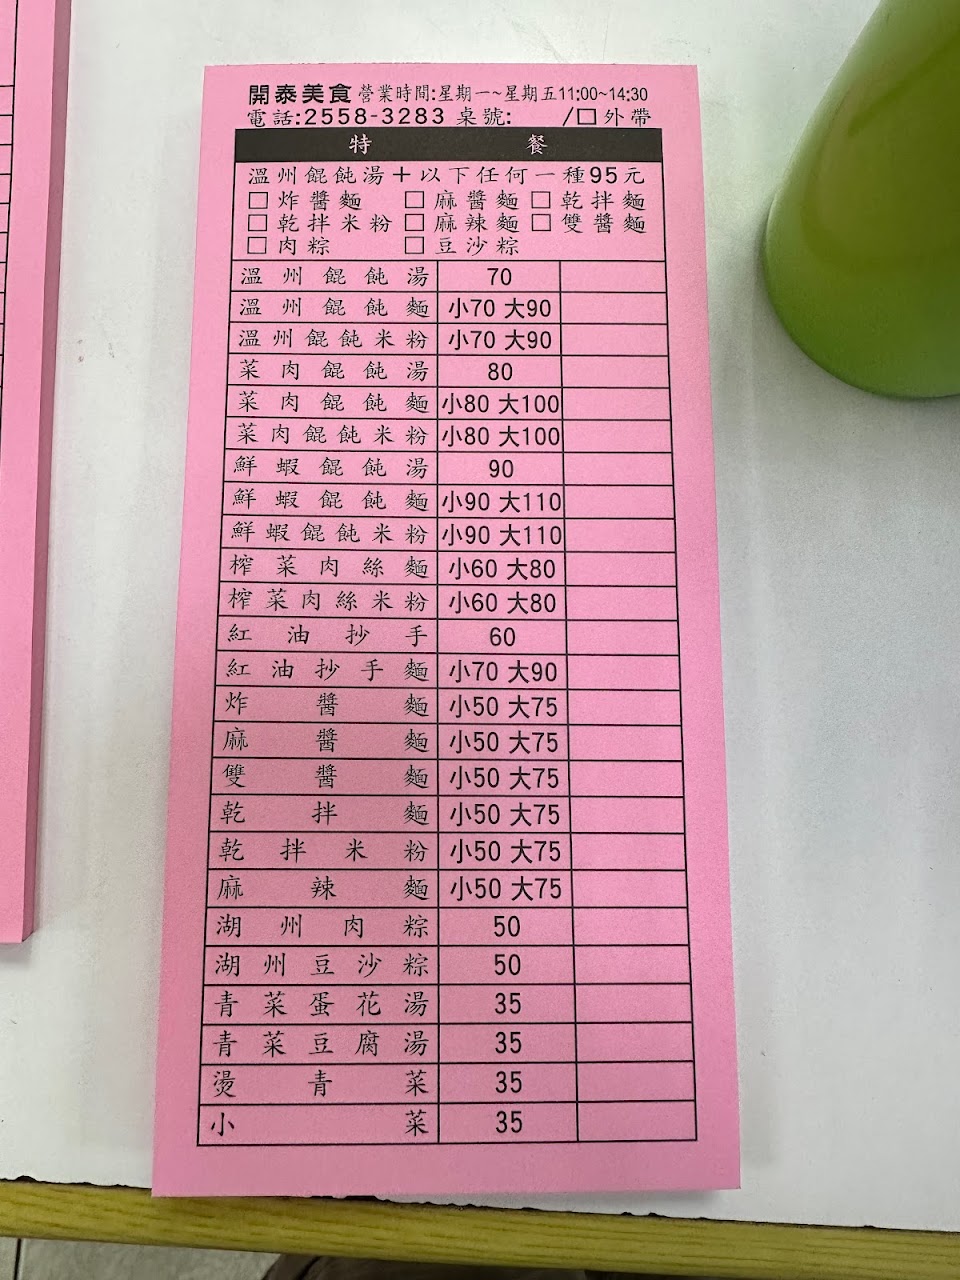 開泰美食 營業時間:星期一~星期五11:00~14:30
電話:2558-3283 桌號: /□外帶
特餐
溫州餛飩湯＋以下任何一種95元
□炸醬麵 □麻醬麵 □乾拌麵
□乾拌米粉 □麻辣麵 □雙醬麵
□肉粽 □豆沙粽
溫州餛飩湯 70
溫州餛飩麵 小70 大90
溫州餛飩米粉 小70 大90
菜肉餛飩湯 80
菜肉餛飩麵 小80 大100
菜肉餛飩米粉 小80 大100
鮮蝦餛飩湯 90
鮮蝦餛飩麵 小90 大110
鮮蝦餛飩米粉 小90 大110
榨菜肉絲麵 小60 大80
榨菜肉絲米粉 小60 大80
紅油抄手 60
紅油抄手麵 小70 大90
炸醬麵 小50 大75
麻醬麵 小50 大75
雙醬麵 小50 大75
乾拌麵 小50 大75
乾拌米粉 小50 大75
麻辣麵 小50 大75
湖州肉粽 50
湖州豆沙粽 50
青菜蛋花湯 35
青菜豆腐湯 35
燙青菜 35
小菜 35